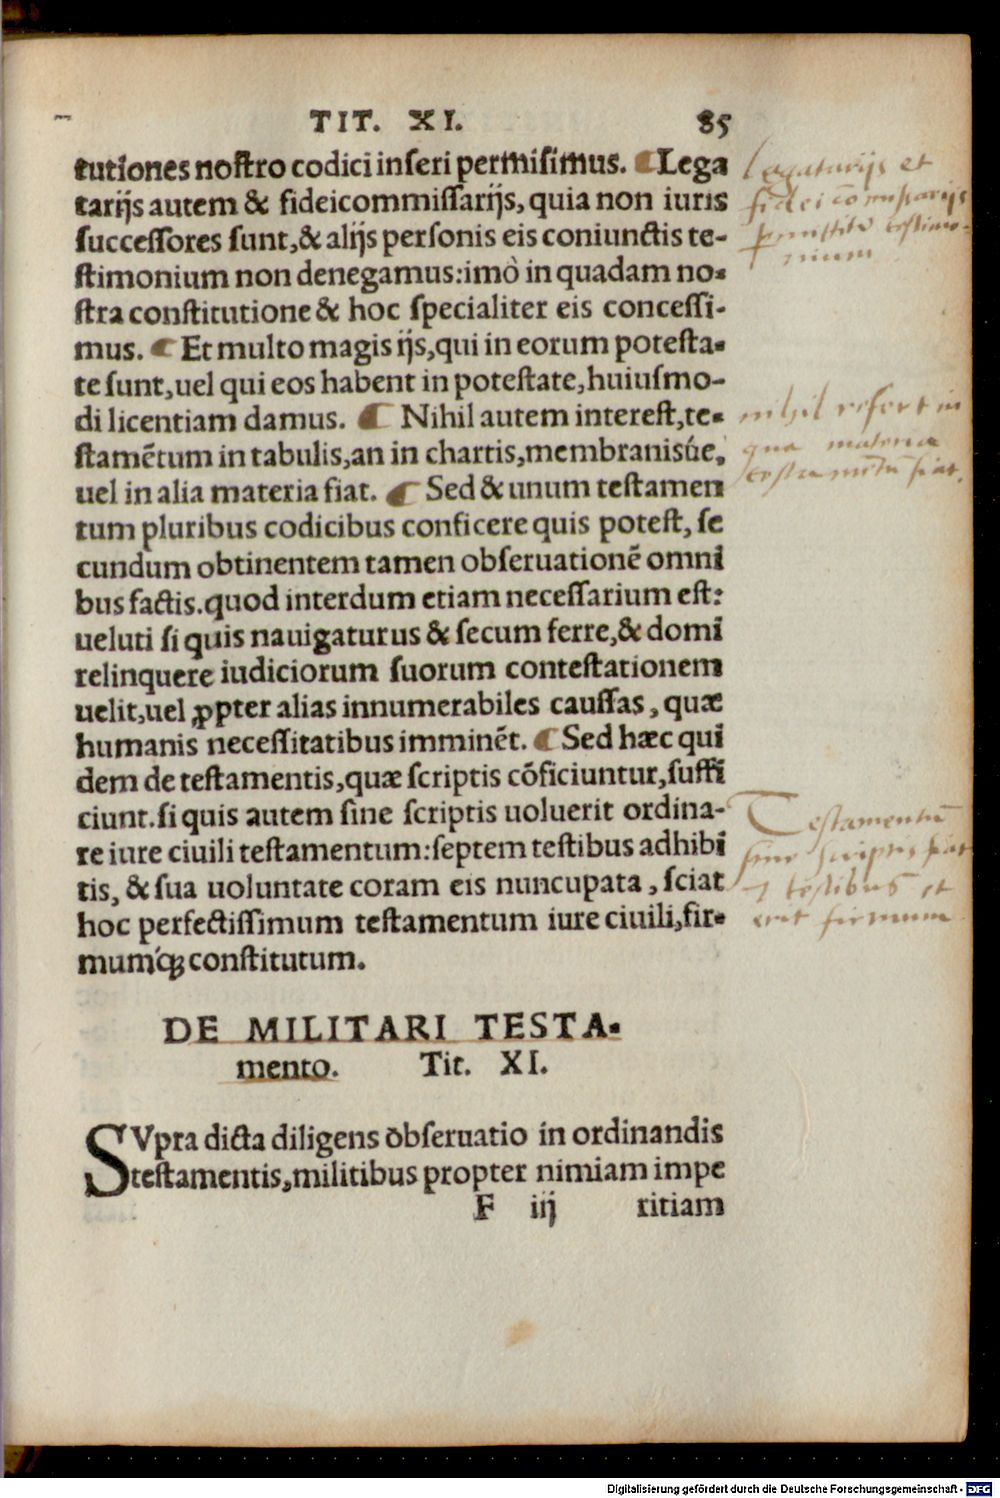 TIT. XI. 85
tutiones nostro codici inseri permisimus. Lega
tarijs autem & fideicommissarijs, quia non iuris
successores sunt,& alijs personis eis coniunctis te-
stimonium non denegamus:imò in quadam no-
stra constitutione & hoc specialiter eis concessi-
mus. Et multo magis ijs,qui in eorum potesta-
te sunt,uel qui eos habent in potestate,huiusmo-
di licentiam damus. Nihil autem interest,te-
stamẽtum in tabulis,an in chartis,membranisúe,
uel in alia materia fiat. Sed & unum testamen
tum pluribus codicibus conficere quis potest, se
cundum obtinentem tamen obseruationẽ omni
bus factis.quod interdum etiam necessarium est:
ueluti si quis nauigaturus & secum ferre,& domi
relinquere iudiciorum suorum contestationem
uelit,uel ꝓpter alias innumerabiles caussas, quæ
humanis necessitatibus imminẽt. Sed hæc qui
dem de testamentis,quæ scriptis cõficiuntur,suffi
ciunt.si quis autem sine scriptis uoluerit ordina-
re iure ciuili testamentum:septem testibus adhibi
tis, & sua uoluntate coram eis nuncupata, sciat
hoc perfectissimum testamentum iure ciuili,fir-
mumq́ꝫ constitutum.
DE MILITARI TESTA-
mento. Tit. XI.
SVpra dicta diligens obseruatio in ordinandis
testamentis,militibus propter nimiam impe
F iij ritiam
Legatarijs et
fidei cõmissarijs
testimo-
nium
nihil refert in
qua materia
testamẽtũ fiat.
Testamentũ
sine scriptis fiat
7 testibus et
erit firmum
Digitalisierung gefördert durch die Deutsche Forschungsgemeinschaft - DFG